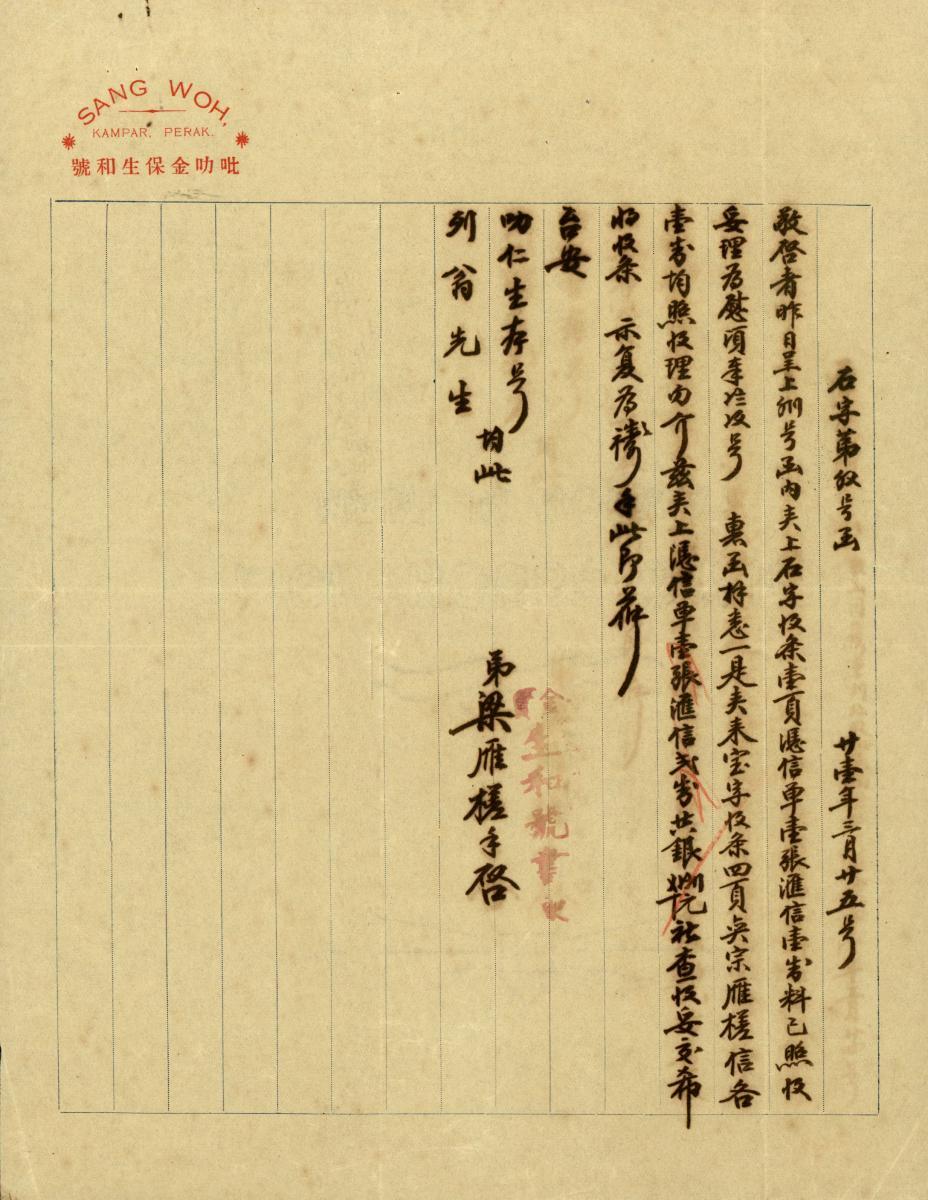 SANG WOH,
KAMPAR, PERAK.
號和生保金叻吡
石字第 号函 廿壹年三月廿五号
敬啓者昨日呈上 号函內夹上石字收条壹頁憑信單壹張滙信壹封料已照收
妥理为慰頃奉 号 惠函拜悉一是夹来宝字收条四頁吳宗雁槎信各
壹封均照收理勿介兹夹上憑信單壹張滙信弍封共銀 元祈查收妥交希
将收条 示复为禱手此即 
台安
叻仁生存号 均此
列翁先生
弟梁雁槎手啓
金 生和號書柬